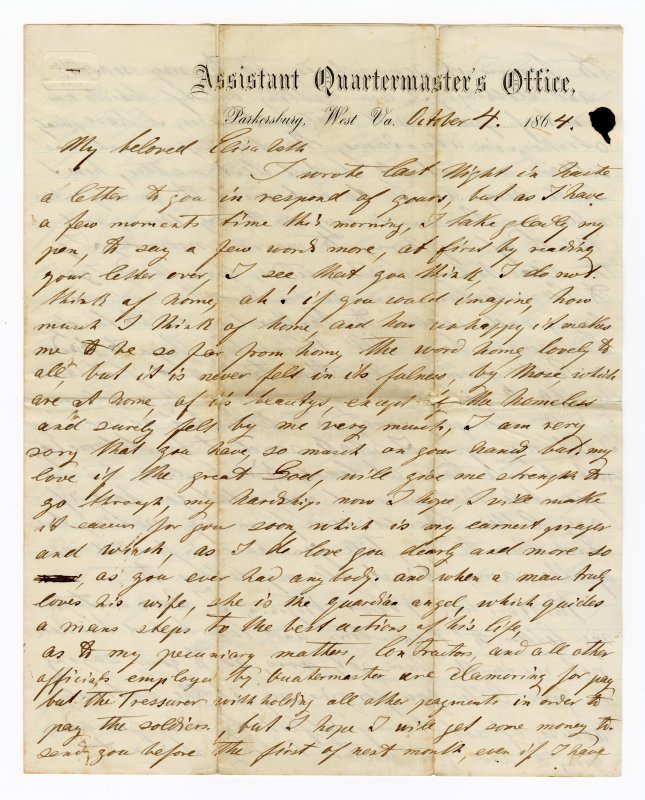 Assistant Quartermaster's Office,
Parkersburg, West Va. October 4. 1864.
My beloved Elisabeth
I wrote last Night in haste
a letter to you in respond of yours, but as I have
a few moments time this morning, I take my
pen, to say a few words more, at first by reading
your letter over, I see that you think, I do not
think of home, ah! if you could imagine, how
much I think of home, and how unhappy it makes
me to be so far from home, the word home, lovely to
all, but it is never felt in its fulness, by those which
are at home, of its beautys, except if the homeless
and surely felt by me very much, I am very
sory that you have, so much on your hands, but my
love if the great God, will give me strength to
go through, my hardships now I hope, I will make
it easier for you soon, which is my earnest prayer
and wish, as I do love you dearly and more so
as you ever had any body. and when a man truly
loves his wife, she is the guardian angel, which guides
a mans steps to the best actions of his life,
as to my pecuniary matters, Contractors, and all other
officials employed by Quatermaster are clamoring for pay
but the Tressurer withholding all other payments in order to
pay the soldiers, but I hope I will get some money to
send you before the first of next month, even if I have